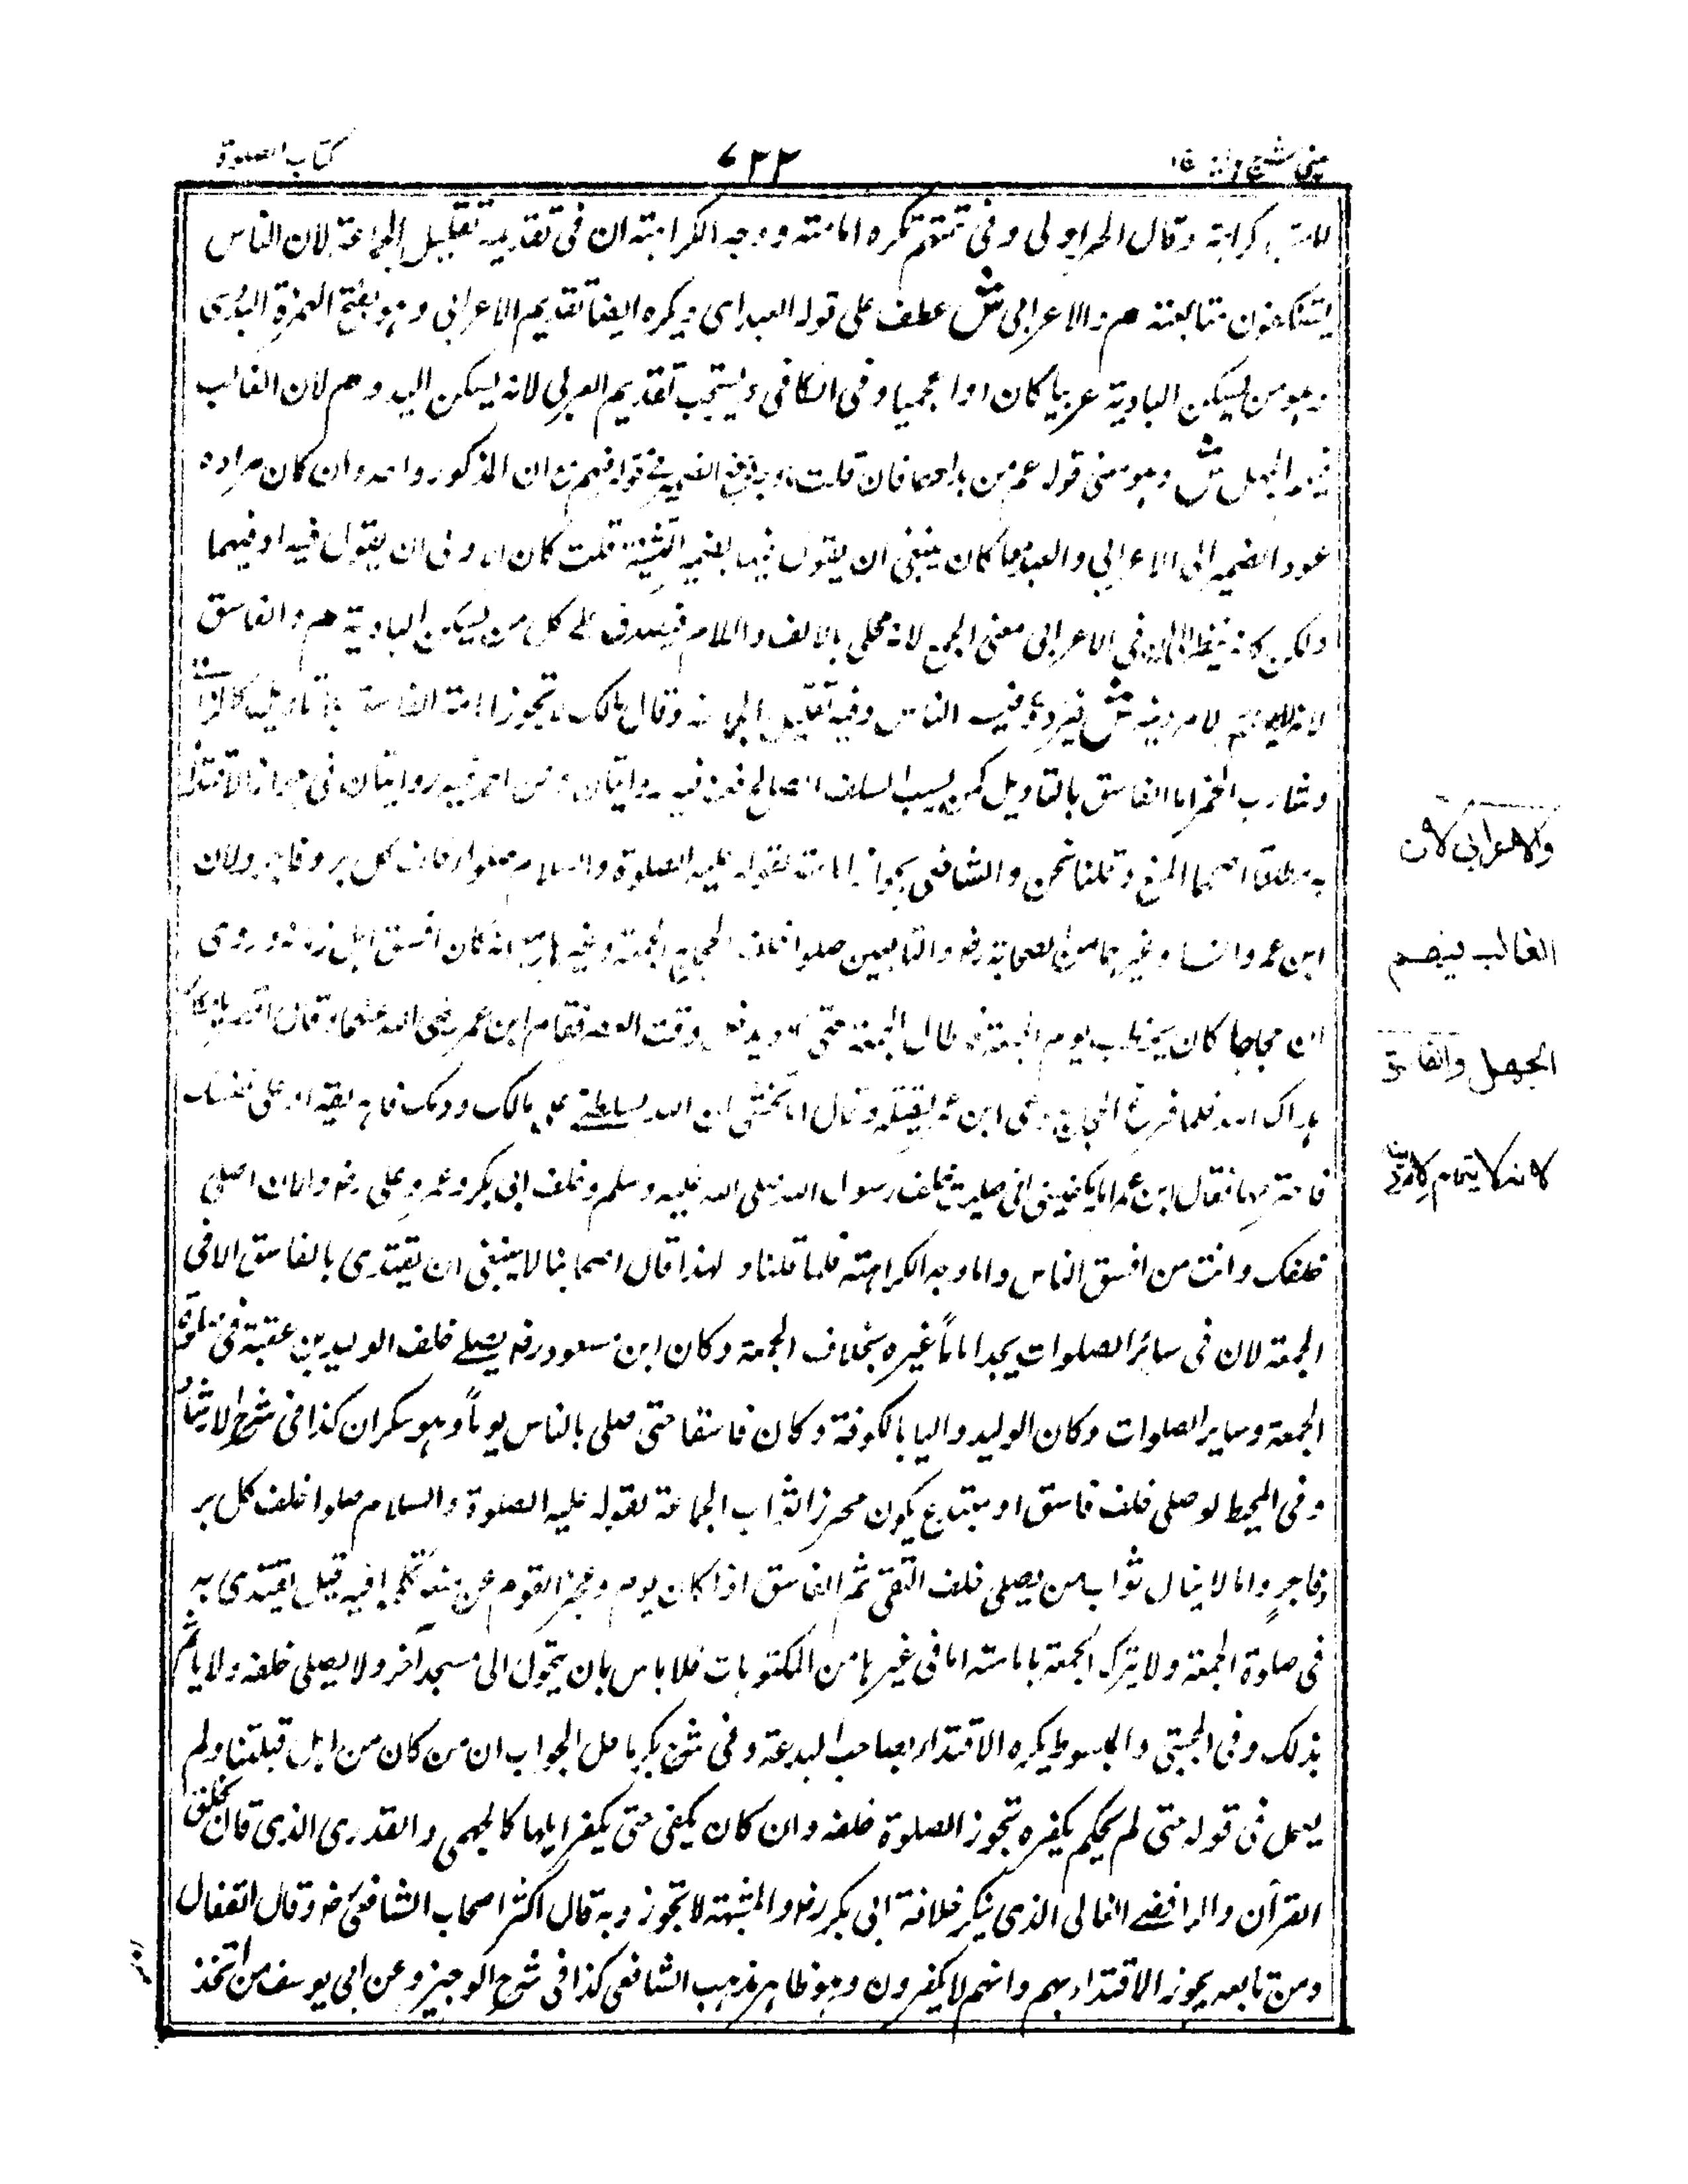 كتاب الصلوة
۷۲۲
كراهة وقال الحلوانى وفى تكره امامته ووجه الكراهة ان فى تقديمه تقليل الجماعة لان الناس
يستنكفون متابعته م والاعرابى ش عطف على قوله العبد اى ويكره ايضا تقديم الاعرابى وهو بفتح الهمزة البدوى
وهو من يسكن البادية عربيا كان او اعجميا وفى الكافى ويستحب تقديم العربى لانه يسكن م لان الغالب
فيهم الجهل ش وهو معنى قوله فان قلت فى قوله فيهم ان المذكور واحد وان كان مراده
عود الضمير الى الاعرابى والعبد كان ينبغى ان يقول بضمير التثنية قلت كان ان يقول فيه او فيهما
ولكن فى الاعرابى معنى الجمع لانه محلى بالالف واللام فيصدق على كل من يسكن البادية م والفاسق
لانه لا يهتم لامر دينه ش الناس وفيه تقليل الجماعة وقال مالك لا تجوز امامة الفاسق بلا تأويل كالزانى
وشارب الخمر اما الفاسق بالتاويل كمن يسب السلف الصالح فعنه فيه روايتان وعن احمد فيه روايتان فى جواز الاقتداء
به مطلقا اصحهما المنع وقلنا نحن والشافعى بجواز امامته لقوله عليه الصلوة والسلام صلوا خلف كل بر وفاجر ولان
ابن عمر وانسا وغيرهما من الصحابة رضـ والتابعين صلوا خلف الحجاج الجمعة وغيرها مع انه كان افسق اهل زمانه وروى
ان حجاجا كان يخطب يوم الجمعة فطال الجمعة حتى وقت العصر فقام ابن عمر رضى الله عنهما وقال
فلما فرغ الحجاج دعى ابن عمر وقال اما تخشى ان الله يسلطنى على مالك ودمك على نفسك
فقال ابن عمر اما يكفينى انى صليت خلف رسول الله صلى الله عليه وسلم وخلف ابى بكر وعمر وعلى رضـ والان اصلى
خلفك وانت من افسق الناس واما وجه الكراهة فلما قلنا ولهذا قال اصحابنا لا ينبغى ان يقتدى بالفاسق الا فى
الجمعة لان فى سائر الصلوات يجد اماماً غيره بخلاف الجمعة وكان ابن مسعود رضـ يصلى خلف الوليد بن عقبة فى صلوة
الجمعة وساير الصلوات وكان الوليد واليا بالكوفة وكان فاسقا حتى صلى بالناس يوماً وهو سكران كذا فى شرح الارشاد
وفى المحيط لو صلى خلف فاسق او مبتدع يكون محرزا ثواب الجماعة لقوله عليه الصلوة والسلام صلوا خلف كل بر
وفاجرٍ واما لا ينال ثواب من يصلى خلف التقى ثم الفاسق اذا كان يوم وعجز القوم عن منعه تكلموا فيه قيل يقتدى به
فى صلوة الجمعة ولا يترك الجمعة بامامته اما فى غيرها من المكتوبات فلا باس بان يتحول الى مسجد آخر ولا يصلى خلفه ولا يأثم
بذلك وفى المجتبى والمبسوط يكره الاقتداء بصاحب البدعة وفى شرح بكر حاصل الجواب ان من كان من اهل قبلتنا ولم
يعمل فى قوله حتى لم يحكم بكفره تجوز الصلوة خلفه وان كان يكفى حتى يكفر اهلها كالجهمى والقدرى الذى قال بخلق
القرآن والرافضى الغالى الذى ينكر خلافة ابى بكر رضـ والمشبهة لا تجوز وبه قال اكثر اصحاب الشافعى رضـ وقال القفال
ومن تابعه يجوز الاقتداء بهم وانهم لا يكفرون وهو ظاهر مذهب الشافعى كذا فى شرح الوجيز وعن ابى يوسف من اتخذ
والاعرابى لان
الغالب فيهم
الجهل والفاسق
لانه لا يهتم لامر دينه